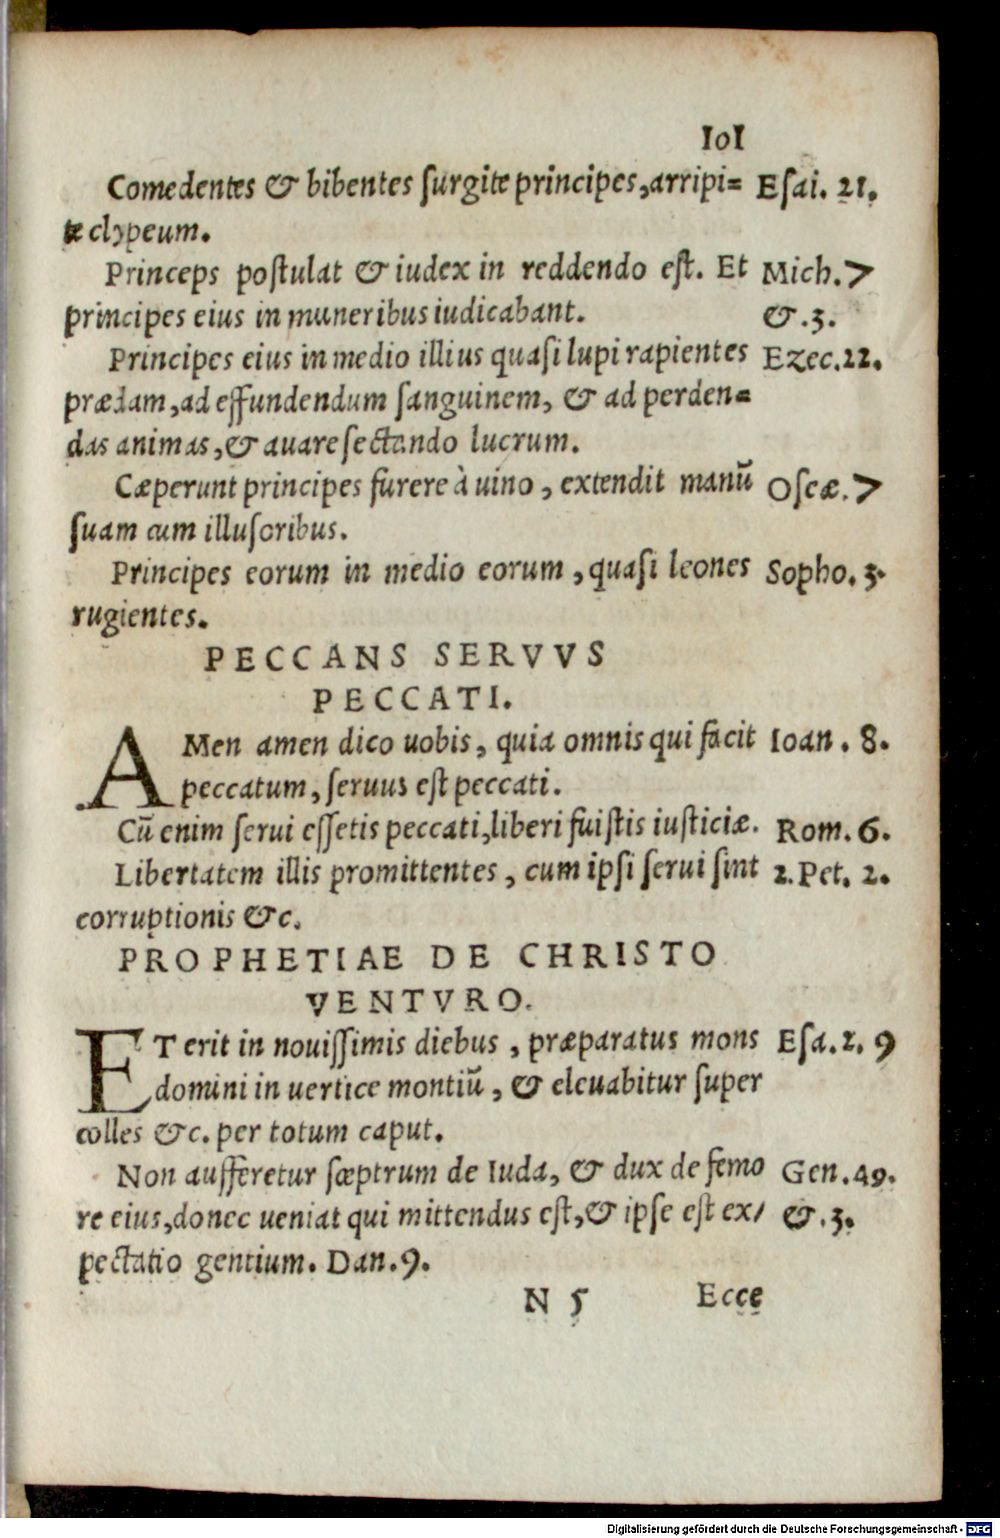 101
Comedentes & bibentes ſurgite principes,arripi= Eſai. 21.
te clypeum.
Princeps poſtulat & iudex in reddendo eſt. Et Mich.7
principes eius in muneribus iudicabant. &.3.
Principes eius in medio illius quaſi lupi rapientes Ezec.22.
prædam,ad effundendum ſanguinem, & ad perden=
das animas,& auare ſectando lucrum.
Cæperunt principes furere à uino , extendit manū Oſeæ.7
ſuam cum illuſoribus.
Principes eorum in medio eorum ,quaſi leones Sopho. 3.
rugientes.
PECCANS SERVVS
PECCATI.
AMen amen dico uobis, quia omnis qui facit Ioan. 8.
peccatum, ſeruus eſt peccati.
Cū enim ſerui eſſetis peccati,liberi fuiſtis iuſticiæ. Rom. 6.
Libertatem illis promittentes , cum ipſi ſerui ſint 2. Pet. 2.
corruptionis &c.
PROPHETIAE DE CHRISTO
VENTVRO.
ET erit in nouiſſimis diebus , præparatus mons Eſa. 2. 9
domini in uertice montiū , & eleuabitur ſuper
colles &c. per totum caput.
Non aufferetur ſceptrum de Iuda, & dux de femo Gen.49.
re eius,donec ueniat qui mittendus eſt,& ipſe eſt ex/ &.3.
pectatio gentium. Dan.9.
N 5 Ecce
Digitalisierung gefördert durch die Deutsche Forschungsgemeinschaft - DFG